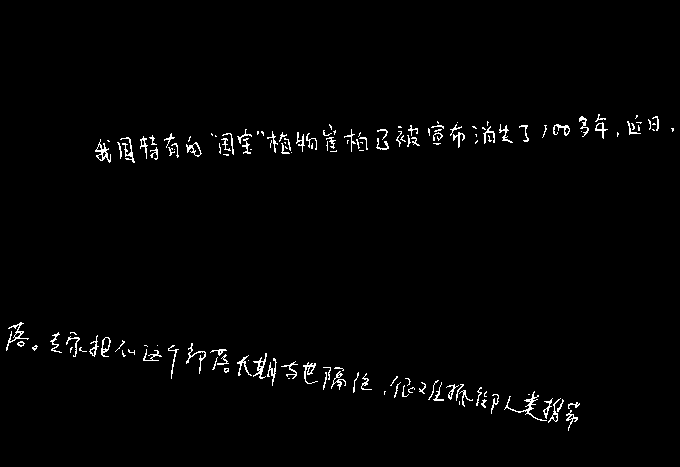 我国特有的“国宝”植物崖柏已被宣布消失了100多年,近日,
落。专家担心这个部落长期与世隔绝,很难抵御人类携带